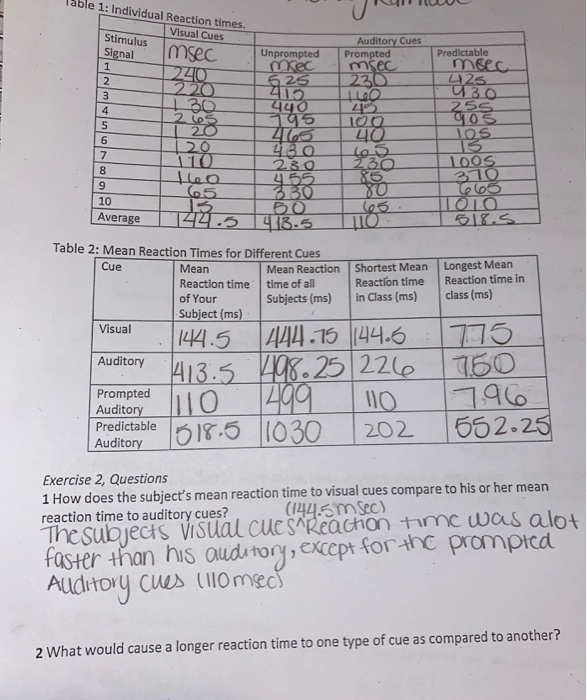 Table 1: Individual Reaction times.
Stimulus Signal Visual Cues Auditory Cues
msec Unprompted msec Prompted msec Predictable msec
1 240 525 230 425
2 220 415 160 430
3 130 440 45 255
4 265 795 100 905
5 120 465 40 105
6 120 430 65 15
7 110 230 230 1005
8 160 455 85 370
9 65 330 80 665
10 15 50 65 1010
Average 144.5 413.5 110 518.5
Table 2: Mean Reaction Times for Different Cues
Cue Mean Reaction time of Your Subject (ms) Mean Reaction time of all Subjects (ms) Shortest Mean Reaction time in Class (ms) Longest Mean Reaction time in class (ms)
Visual 144.5 444.75 144.5 775
Auditory 413.5 498.25 226 750
Prompted Auditory 110 499 110 796
Predictable Auditory 518.5 1030 202 552.25
Exercise 2, Questions
1 How does the subject's mean reaction time to visual cues compare to his or her mean
reaction time to auditory cues? (144.5 msec)
The subjects visual cues ^ Reaction time was a lot
faster than his auditory, except for the prompted
Auditory cues (110 msec)
2 What would cause a longer reaction time to one type of cue as compared to another?